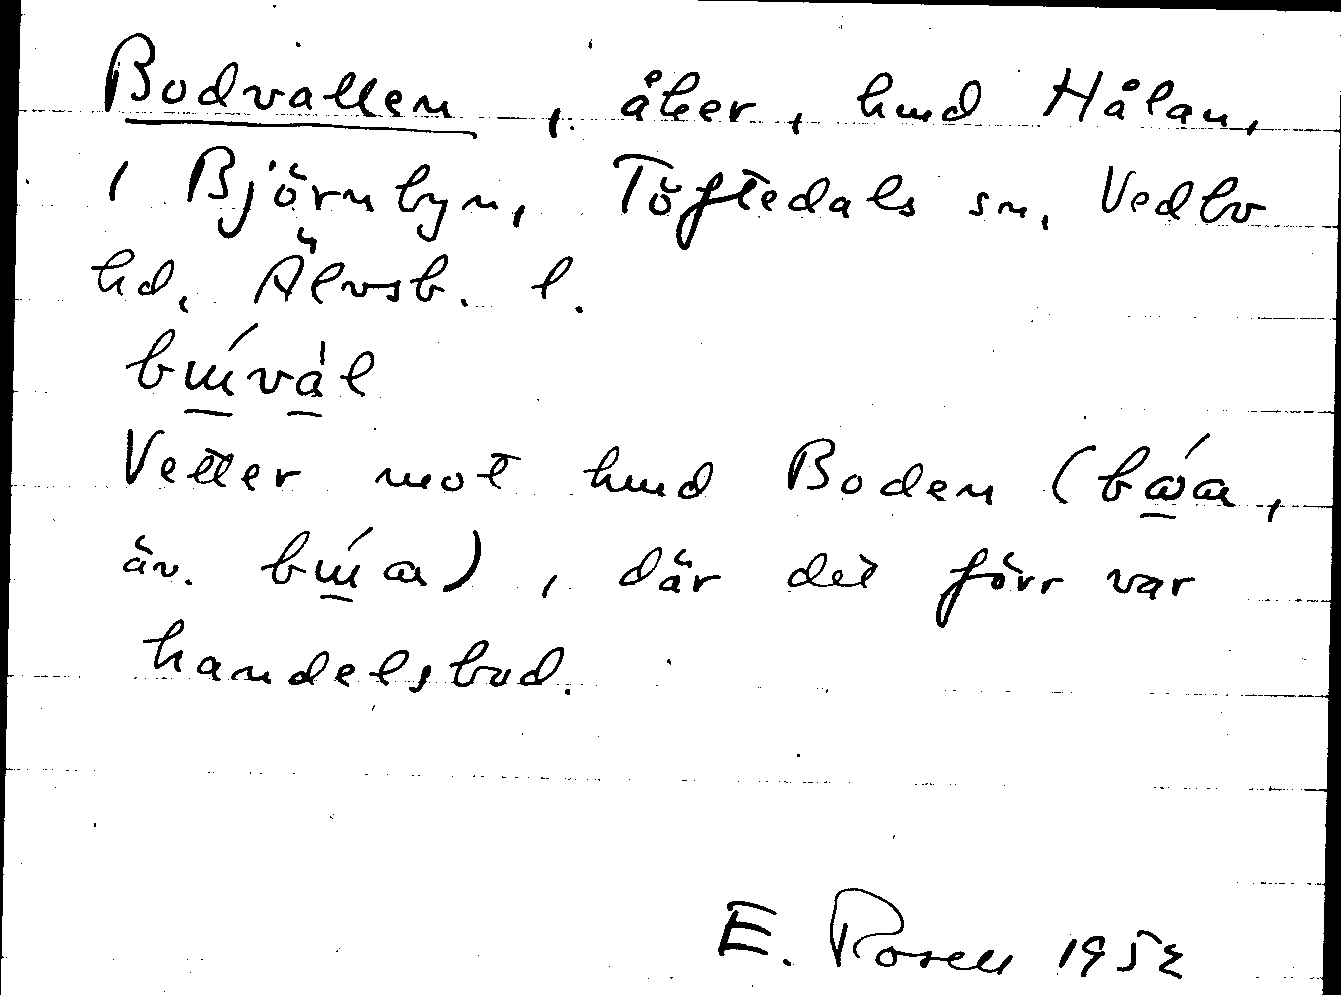 Bodvallen, åker, hmd Hålan,
1 Björnbyn, Töftedals sn, Vedbo
hd, Älvsb. l.
bɯ́vàl
Vetter mot hmd Boden (bώa,
äv. bɯ́a), där det förr var
handelsbod.
E. Rosell 1952